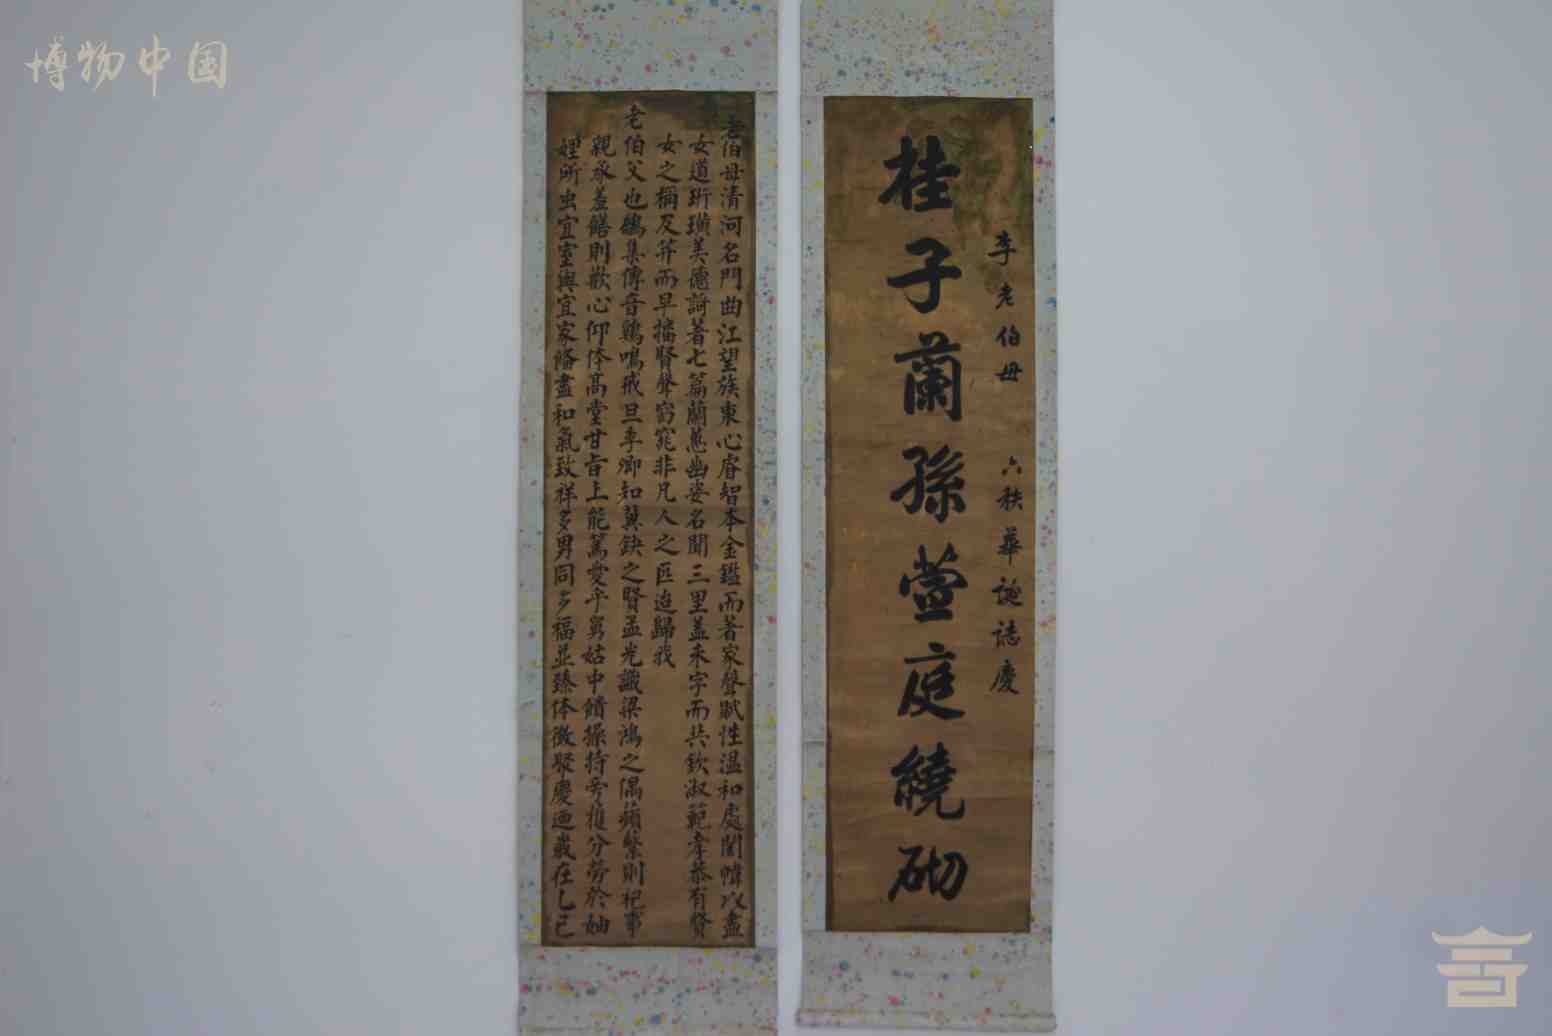 博物中国
李老伯母 六秩華誕誌慶
桂子蘭孫萱庭繞砌
老伯母清河名門曲江望族東心睿智本金鑑而著家聲賦性温和處閨幃以盡
女道珩璜美德詩著七篇蘭蕙幽姿名聞三里蓋未字而共欽淑範孝恭有賢
女之稱及笄而早播賢聲窈窕非凡人之匹迨歸我
老伯父也鵲集傳音鷄鳴戒旦季卿知冀缺之賢孟光識梁鴻之隅蘋蘩則祀事
親承羞饍則歡心仰体髙堂甘旨上能篤愛乎舅姑中饋操持旁推分勞於妯
娌所出宜室與宜家脩盡和氣致祥多男同多福並臻体徵聚慶迺歲在乙已